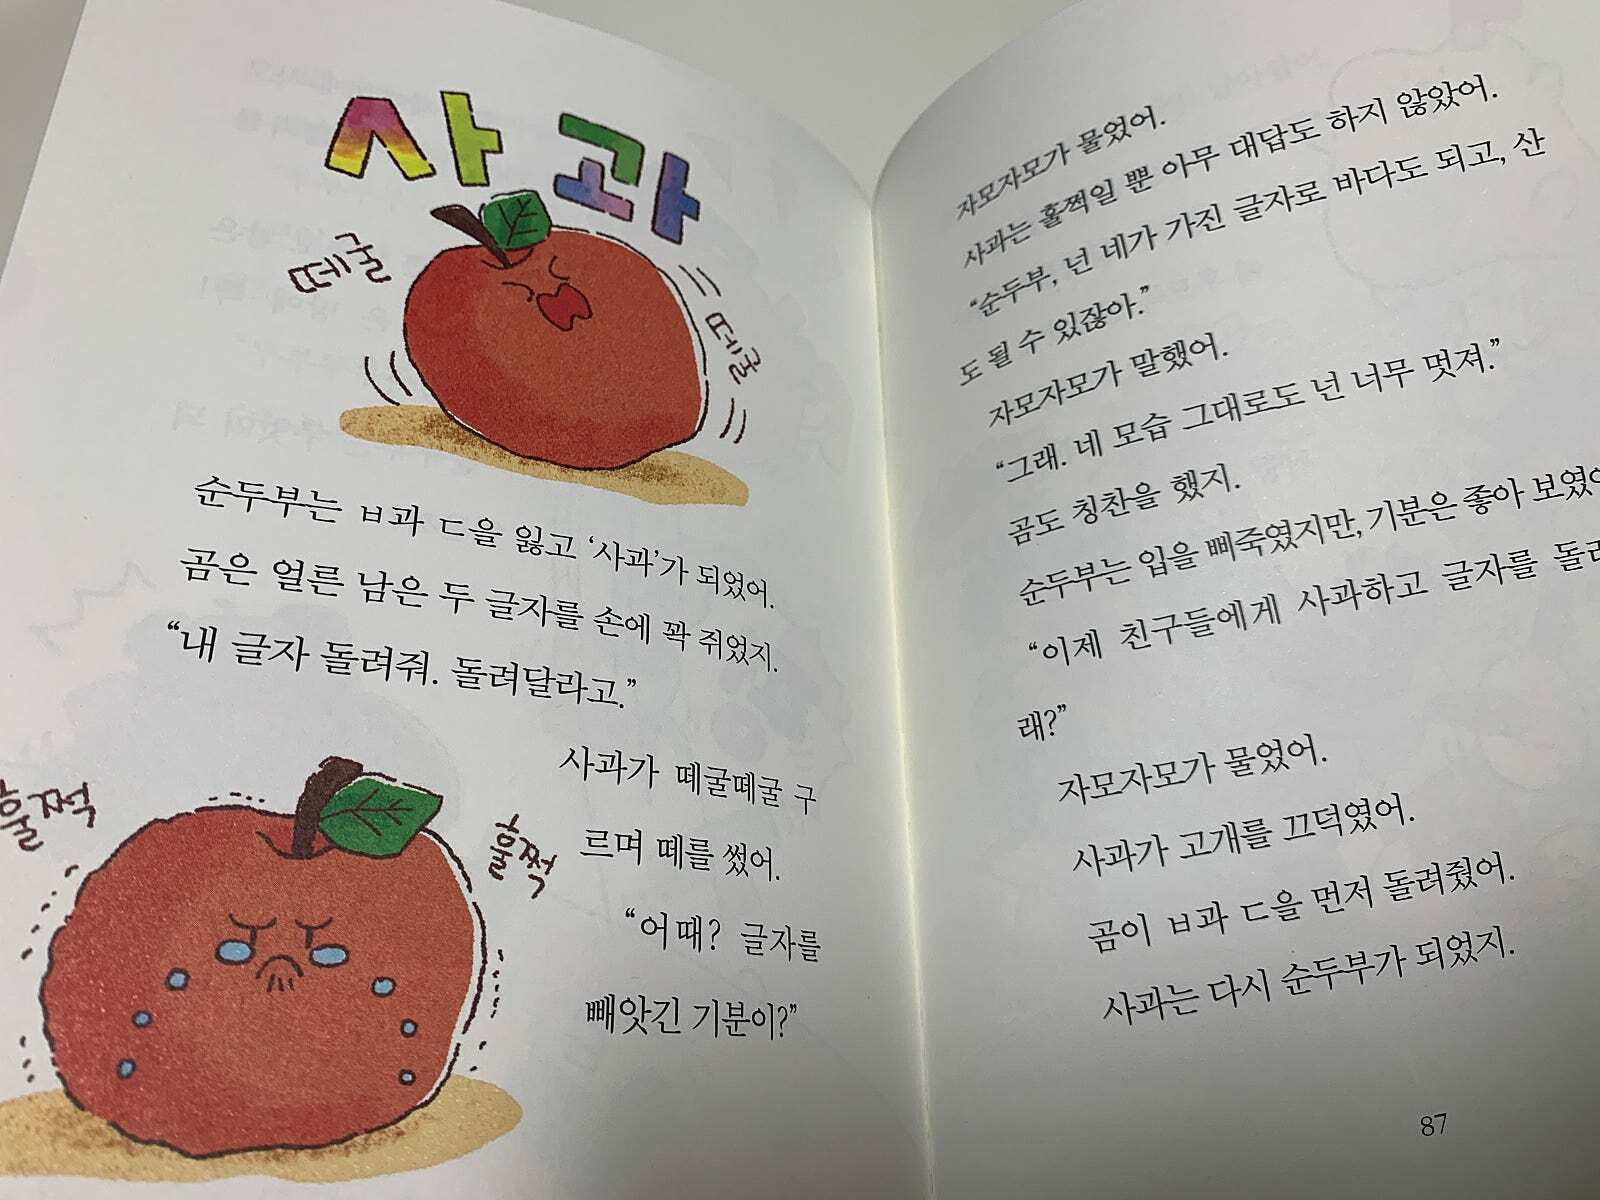 사과
떼굴
떼굴
순두부는 ㅂ과 ㄷ을 잃고 ‘사과’가 되었어.
곰은 얼른 남은 두 글자를 손에 꽉 쥐었지.
“내 글자 돌려줘. 돌려달라고.”
훌쩍
훌쩍
사과가 떼굴떼굴 구
르며 떼를 썼어.
“어때? 글자를
빼앗긴 기분이?”
자모자모가 물었어.
사과는 훌쩍일 뿐 아무 대답도 하지 않았어.
“순두부, 넌 네가 가진 글자로 바다도 되고, 산
도 될 수 있잖아.”
자모자모가 말했어.
“그래. 네 모습 그대로도 넌 너무 멋져.”
곰도 칭찬을 했지.
순두부는 입을 삐죽였지만, 기분은 좋아 보였어
“이제 친구들에게 사과하고 글자를 돌려
래?”
자모자모가 물었어.
사과가 고개를 끄덕였어.
곰이 ㅂ과 ㄷ을 먼저 돌려줬어.
사과는 다시 순두부가 되었지.
87